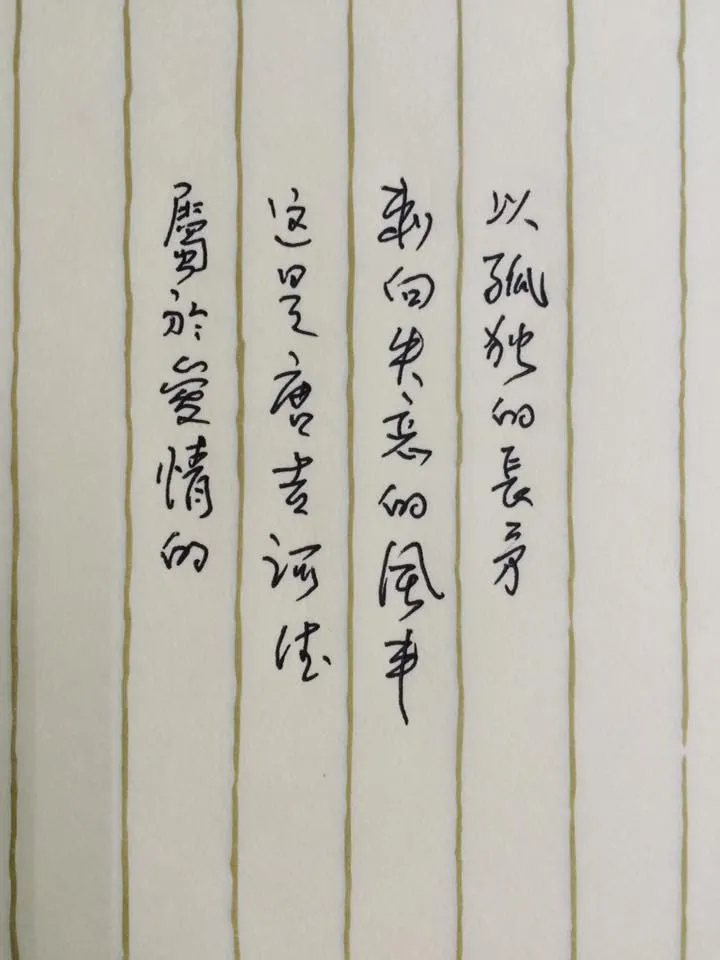 以孤独的長矛
刺向失意的風車
这是唐吉诃德
屬於愛情的